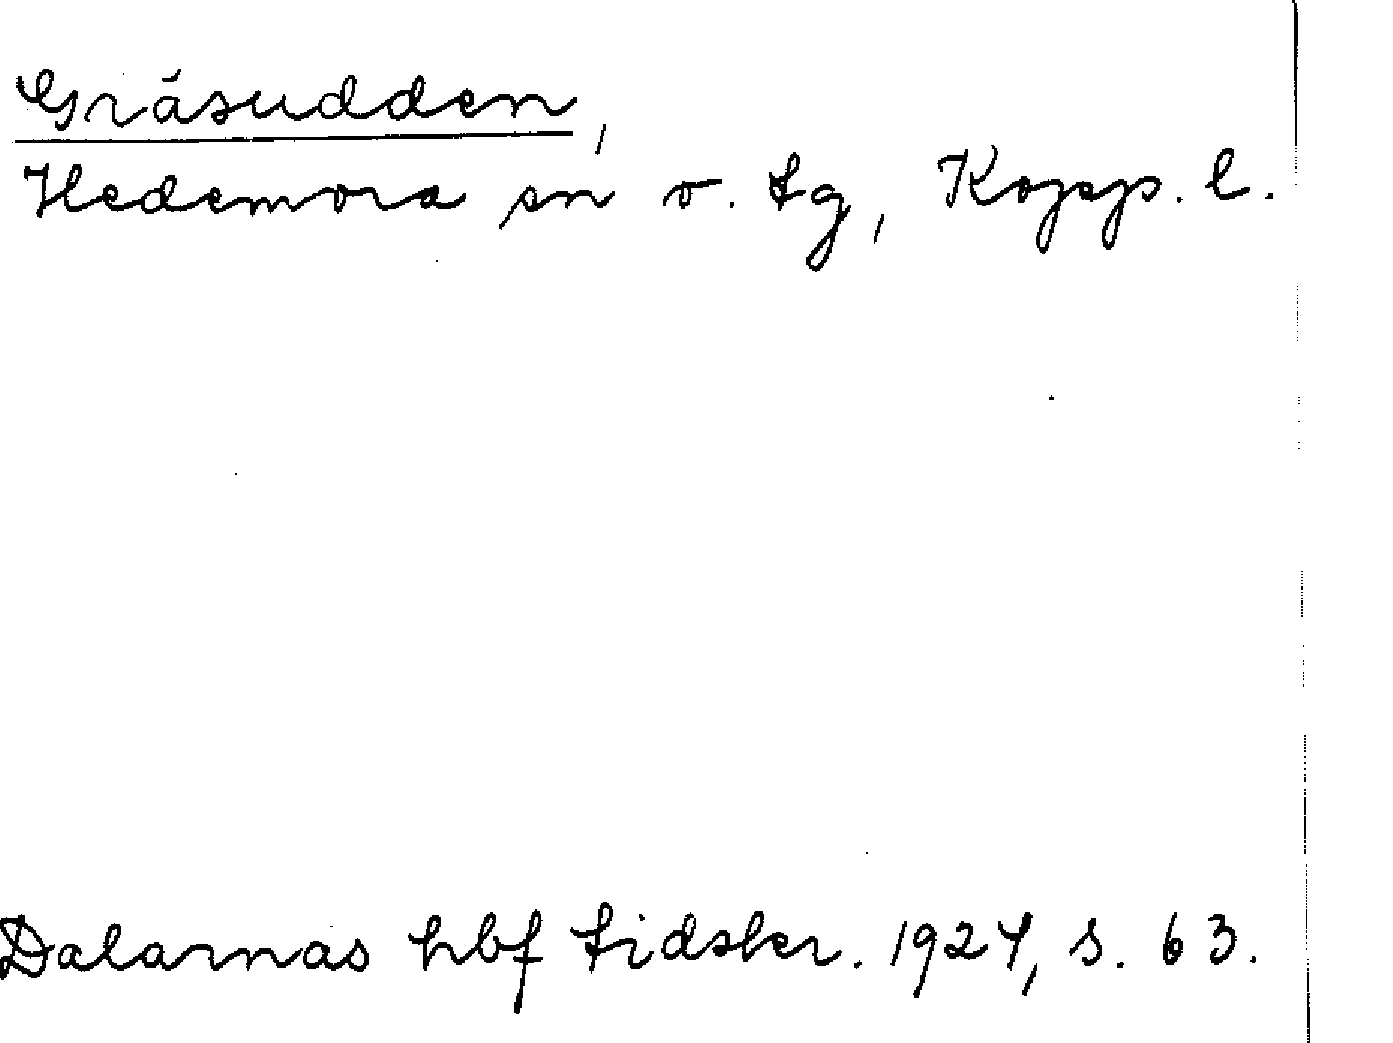 Gräsudden,
Hedemora sn o. tg, Kopp. l.
Dalarnas hbf tidskr. 1927, s. 63.